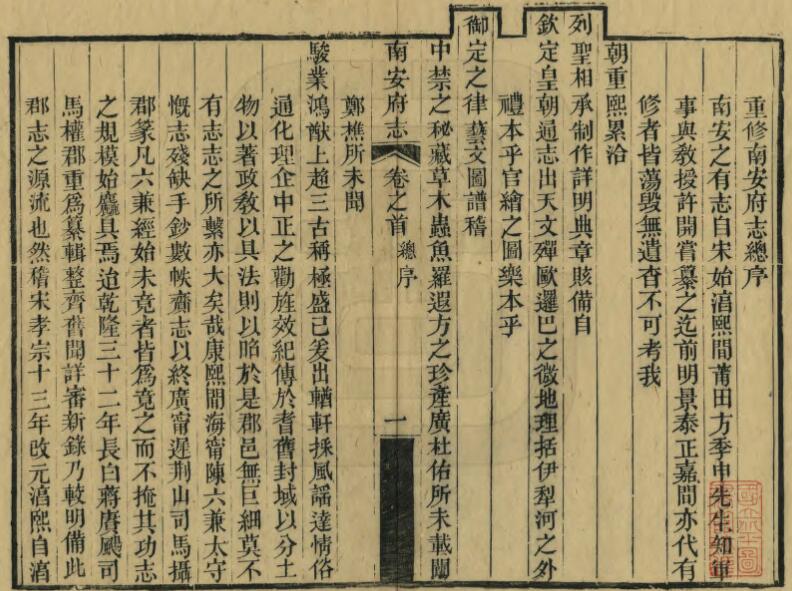 重修南安府志總序
南安之有志自宋始湻熙間莆田方季申先生知軍
事與教授許開嘗纂之迄前明景泰正嘉間亦代有
修者皆蕩毀無遺杳不可考我
朝重熙累洽
列聖相承制作詳明典章賅備自
欽定皇朝通志出天文殫歐邏巴之微地理括伊犁河之外
禮本乎官繪之圖樂本乎
御定之律藝文圖譜稽
中禁之秘藏草木蟲魚羅遐方之珍產廣杜佑所未載闡
南安府志 卷之首 總序 一
鄭樵所未聞
駿業鴻猷上趨三古稱極盛已爰出輶軒採風謠達情俗
通化理企中正之勸旌效紀傳於耆舊封域以分土
物以著政敎以具法則以昭於是郡邑無巨細莫不
有志志之所繫亦大矣哉康熙間海甯陳六兼太守
慨志殘缺手鈔數帙齎志以終廣甯遲荆山司馬攝
郡篆凡六兼經始未竟者皆爲竟之而不掩其功志
之規模始麤具焉迨乾隆三十二年長白蔣唐颺司
馬權郡重爲纂輯整齊舊聞詳審新錄乃較明備此
郡志之源流也然稽宋孝宗十三年改元湻熙自湻